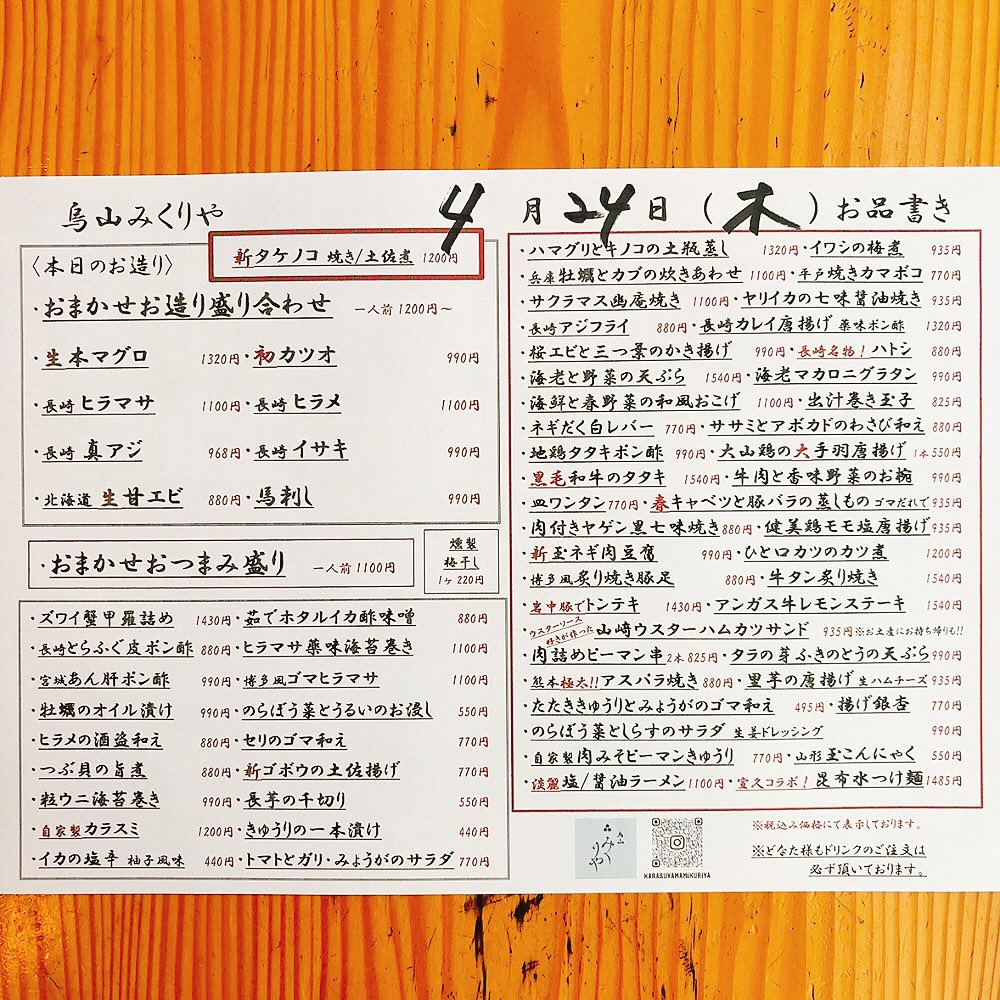 烏山みくりや 4月24日(木)お品書き
新タケノコ 焼き/土佐煮 1200円
〈本日のお造り〉
・おまかせお造り盛り合わせ 一人前1200円〜
・生本マグロ 1320円・初カツオ 990円
・長崎ヒラマサ 1100円・長崎ヒラメ 1100円
・長崎 真アジ 968円・長崎イサキ 990円
・北海道 生甘エビ 880円・馬刺し 990円
・おまかせおつまみ盛り 一人前1100円
燻製
梅干し
1ヶ220円
・ズワイ蟹甲羅詰め 1430円・茹でホタルイカ酢味噌 880円
・長崎とらふぐ皮ポン酢 880円・ヒラマサ薬味海苔巻き 1100円
・宮城あん肝ポン酢 990円・博多風ゴマヒラマサ 1100円
・牡蠣のオイル漬け 990円・のらぼう菜とうるいのお浸し 550円
・ヒラメの酒盗和え 880円・セリのゴマ和え 770円
・つぶ貝の旨煮 880円・新ゴボウの土佐揚げ 770円
・粒ウニ海苔巻き 990円・長芋の千切り 550円
・自家製カラスミ 1200円・きゅうりの一本漬け 440円
・イカの塩辛 柚子風味 440円・トマトとガリ・みょうがのサラダ 770円
・ハマグリとキノコの土瓶蒸し 1320円・イワシの梅煮 935円
・兵庫牡蠣とカブの炊きあわせ 1100円・平戸焼きカマボコ 770円
・サクラマス幽庵焼き 1100円・ヤリイカの七味醤油焼き 935円
・長崎アジフライ 880円・長崎カレイ唐揚げ 薬味ポン酢 1320円
・桜エビと三つ葉のかき揚げ 990円・長崎名物!ハトシ 880円
・海老と野菜の天ぷら 1540円・海老マカロニグラタン 990円
・海鮮と春野菜の和風おこげ 1100円・出汁巻き玉子 825円
・ネギだく白レバー 770円・ササミとアボカドのわさび和え 880円
・地鶏タタキポン酢 990円・大山鶏の大手羽唐揚げ 1本550円
・黒毛和牛のタタキ 1540円・牛肉と香味野菜のお椀 990円
・皿ワンタン 770円・春キャベツと豚バラの蒸しもの ゴマだれで 935円
・肉付きヤゲン黒七味焼き 880円・健美鶏モモ塩唐揚げ 935円
・新玉ネギ肉豆腐 990円・ひと口カツのカツ煮 1200円
・博多風炙り焼き豚足 880円・牛タン炙り焼き 1540円
・岩中豚でトンテキ 1430円・アンガス牛レモンステーキ 1540円
・ウスターソース好きが作った 山﨑ウスターハムカツサンド 935円※お土産にお持ち帰りも!!
・肉詰めピーマン串 2本825円・タラの芽ふきのとうの天ぷら 990円
・熊本極太!!アスパラ焼き 880円・里芋の唐揚げ 生ハムチーズ 935円
・たたききゅうりとみょうがのゴマ和え 495円・揚げ銀杏 770円
・のらぼう菜としらすのサラダ 生姜ドレッシング 990円
・自家製肉みそピーマンきゅうり 770円・山形玉こんにゃく 550円
・淡麗塩/醤油ラーメン 1100円・宣久コラボ!昆布水つけ麺 1485円
烏山
みくりや
KARASUYAMAMIKURIYA
※税込み価格にて表示しております。
※どなた様もドリンクのご注文は
必ず頂いております。